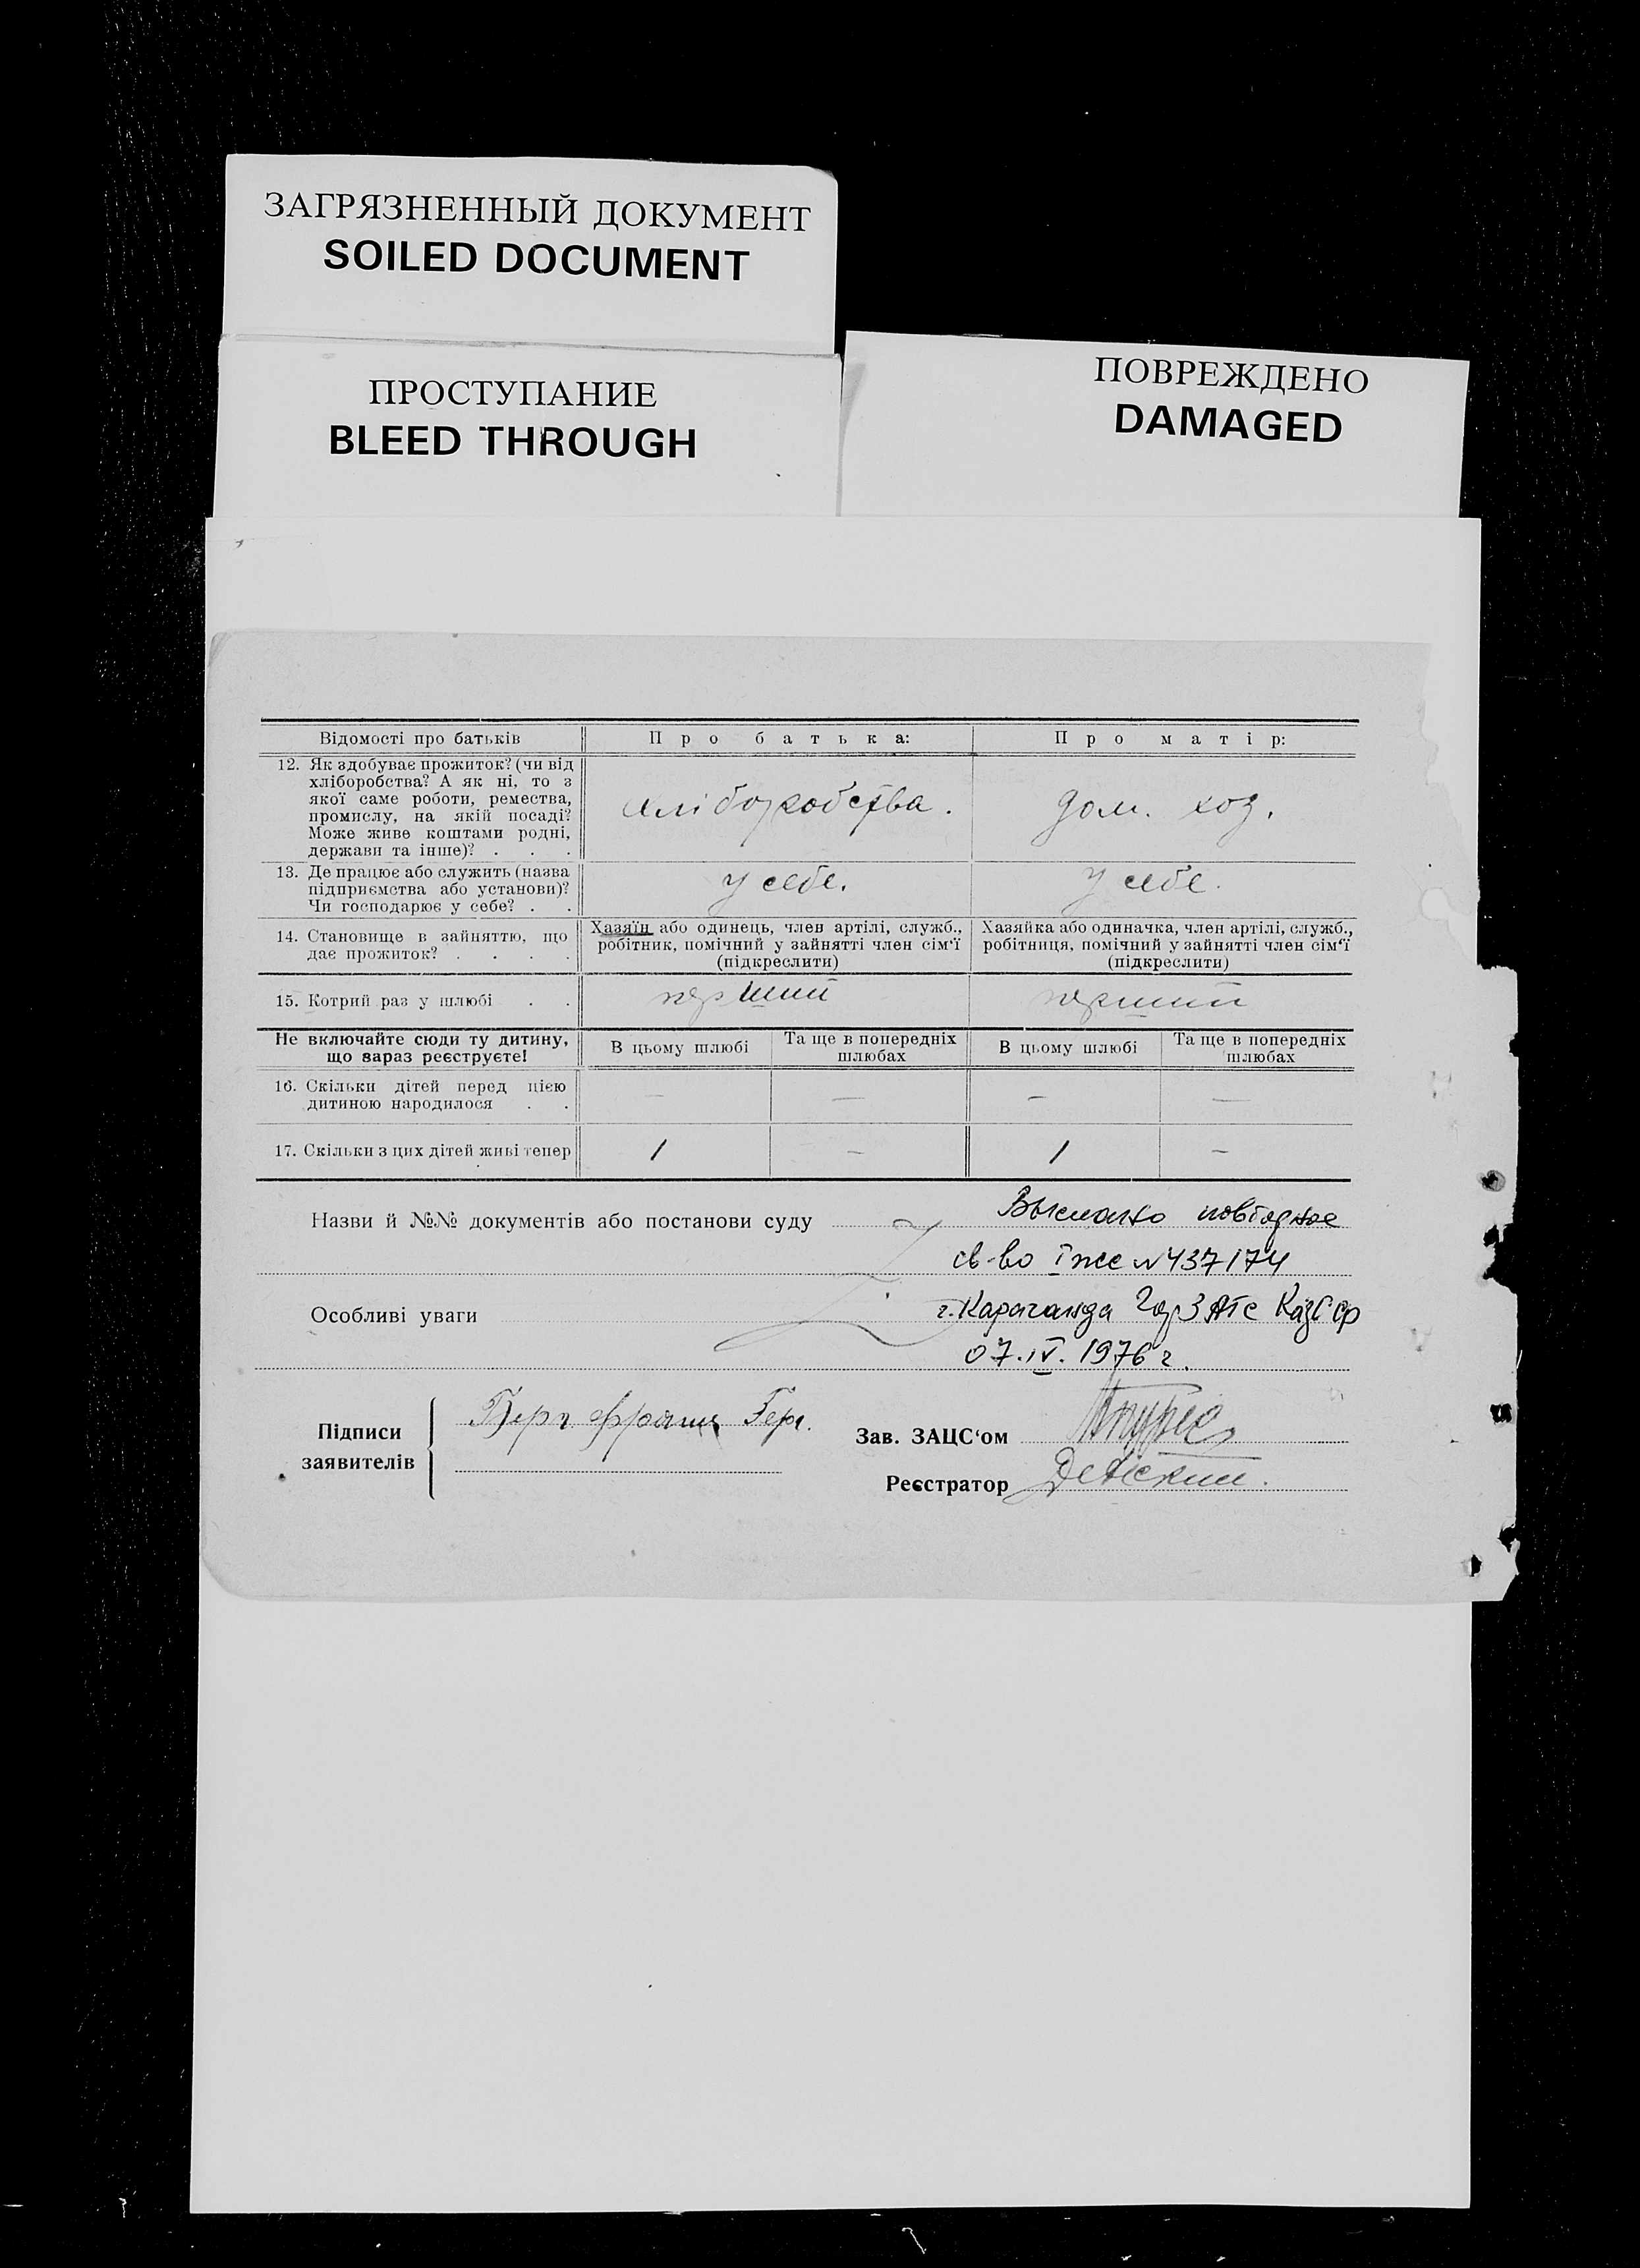 ЗАГРЯЗНЕННЫЙ ДОКУМЕНТ
SOILED DOCUMENT
ПРОСТУПАНИЕ
BLEED THROUGH
ПОВРЕЖДЕНО
DAMAGED
Відомості про батьків
Про батька:
Про матір:
12. Як здобуває прожиток? (чи від
хліборобства? А як ні, то з
якої саме роботи, ремества,
промислу, на якій посаді?
Може живе коштами родні,
держави та інше)? . . .
хліборобства.
дом. хоз.
13. Де працює або служить (назва
підприємства або установи)?
Чи господарює у себе? . .
у себе.
у себе.
14. Становище в зайняттю, що
дає прожиток? . . . .
Хазяїн або одинець, член артілі, служб.,
робітник, помічний у зайнятті член сім'ї
(підкреслити)
Хазяйка або одиначка, член артілі, служб.,
робітниця, помічний у зайнятті член сім'ї
(підкреслити)
15. Котрий раз у шлюбі . .
перший
перший
Не включайте сюди ту дитину,
що зараз реєструєте!
В цьому шлюбі
Та ще в попередніх
шлюбах
В цьому шлюбі
Та ще в попередніх
шлюбах
16. Скільки дітей перед цією
дитиною народилося . .
— — — —
17. Скільки з цих дітей живі тепер
1 — 1 —
Назви й №№ документів або постанови суду
Выслано повторное
св-во № 437174
Особливі уваги
г. Караганда ГорЗАГС КазССР
07.IV.1976 г.
Підписи
заявителів
Берг Франц Гер.
Зав. ЗАЦС'ом
Реєстратор